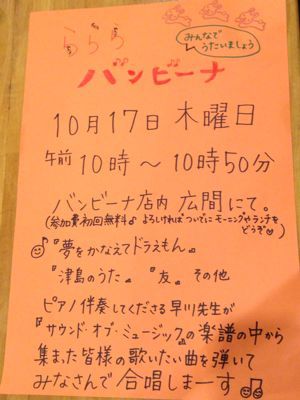 ららら
みんなで
うたいましょう
バンビーナ
10月17日 木曜日
午前 10時〜10時50分
バンビーナ店内 広間にて。
(参加費初回無料♪ よろしければついでにモーニングやランチを
どうぞ♡)
『夢をかなえてドラえもん』
『津島のうた』、『友』 その他
ピアノ伴奏してくださる早川先生が
『サウンド・オブ・ミュージック』の楽譜の中から
集まった皆様の歌いたい曲を弾いて
みなさんで 合唱しまーす♫